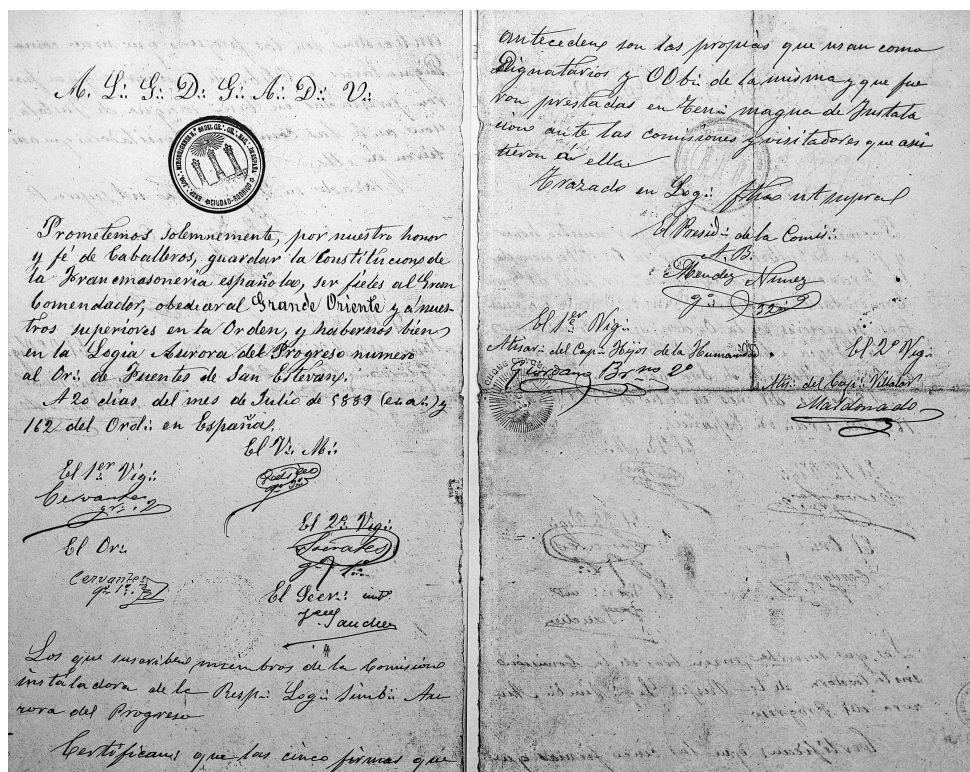 A. L∴ G∴ D∴ G∴ A∴ D∴ U∴
CIUDAD-RODRIGO
Prometemos, solemnemente, por nuestro honor
y fé de Caballeros, guardar la Constitucion de
la Francmasoneria española, ser fieles al Gran
Comendador, obedecer al Grande Oriente y á nues-
tros superiores en la Orden, y habernos bien
en la Logia Aurora del Progreso numero
al Or∴ de Fuentes de San Estevan.
A 20 dias del mes de Julio de 1889 (e∴v∴) y
162 del Ord∴ en España.
El V∴ M∴
El 1er Vig∴
Cervantes
gr∴ 2
El 2º Vig∴
Sócrates
g∴ 1º
El Or∴
Cervantes
g∴ 1º
El Secr∴
Sanchez
Los que suscriben, miembros de la Comision
instaladora de la Resp∴ Log∴ Simb∴ Au-
rora del Progreso
Certifican: que las cinco firmas que
antecedene son las propias que usan como
Dignatarios y OObr∴ de la misma y que fue
ron prestadas en Ten∴ magna de Instala
cion ante las comisiones y visitadores que asis
tieron á ella.
Trazado en Log∴ fhas ut supra
El Presid∴ de la Comis∴
A. B.
Mendez Nunez
El 1er Vig∴
del Cap∴ Hijos de la Humanidad
Giordano Brno 2º
El 2º Vig∴
del Cap∴ Villalar
Maldonado